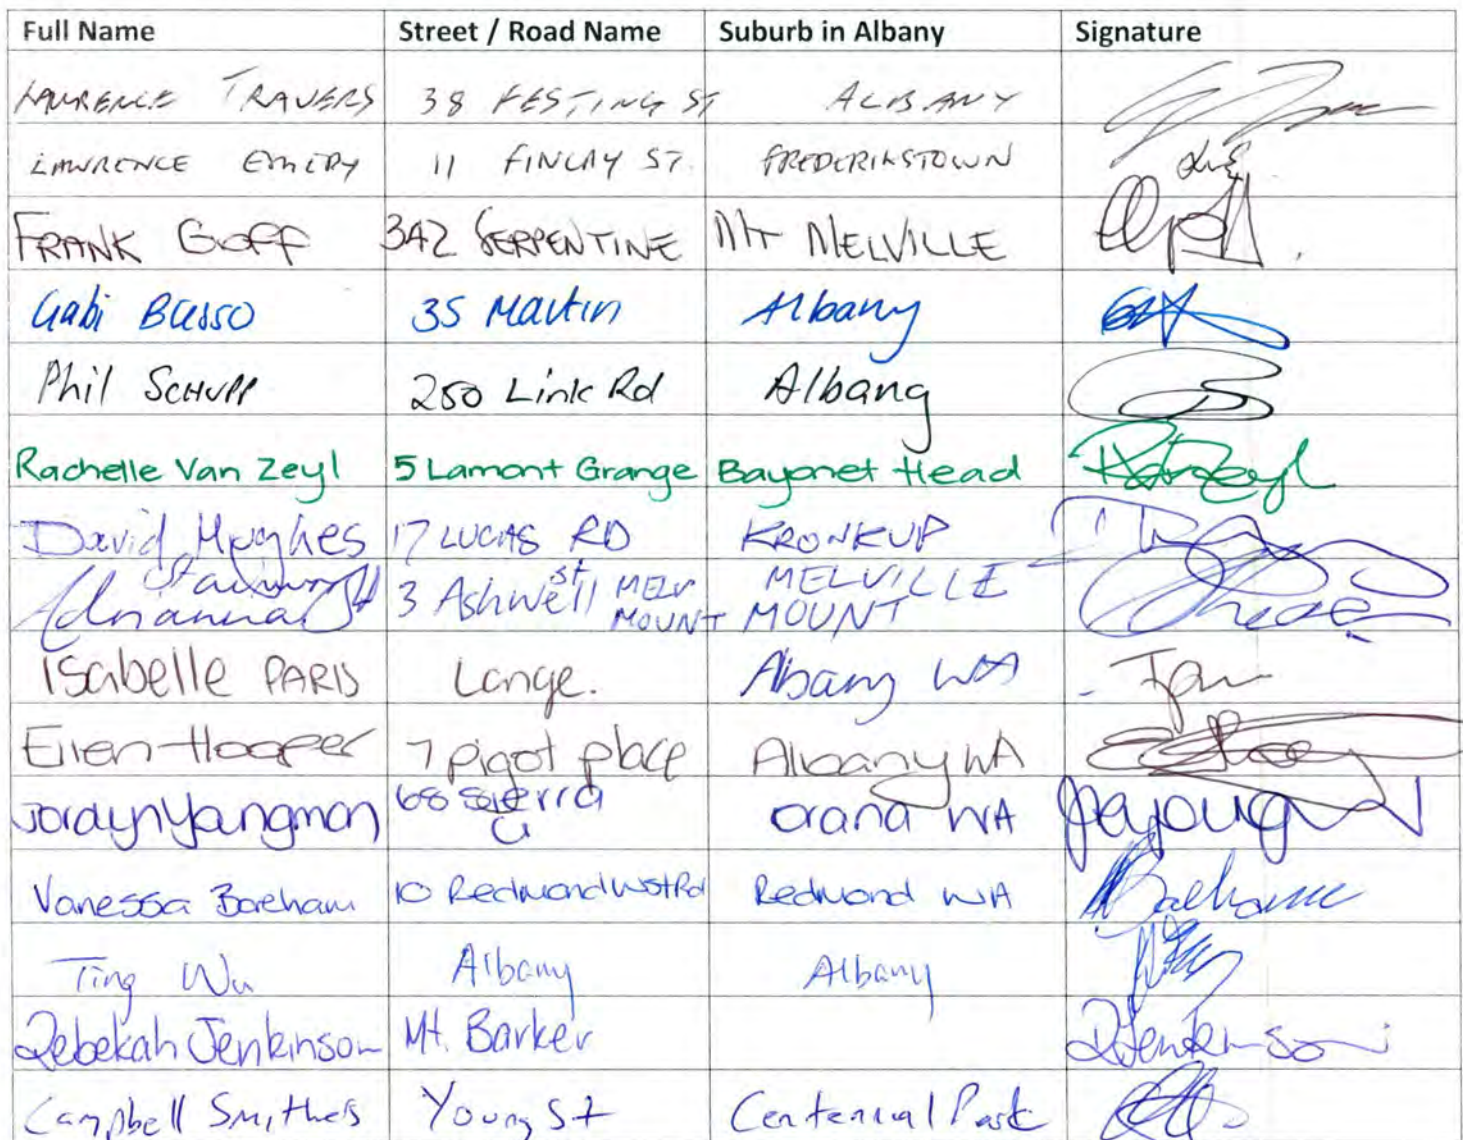 Full Name Street / Road Name Suburb in Albany Signature
LAURENCE TRAVERS 38 FESTING ST ALBANY
LAWRENCE EMERY 11 FINLAY ST. FREDERIKSTOWN
FRANK GOFF 342 SERPENTINE Mt MELVILLE
Gabi Busso 35 Martin Albany
Phil SCHUPP 250 Link Rd Albany
Rachelle Van Zeyl 5 Lamont Grange Bayonet Head
David Hughes 17 LUCAS RD KRONKUP
Adrianna 3 Ashwell St MELV MOUNT MELVILLE MOUNT
Isabelle PARIS Lange. Albany WA
Eilen Hooper 7 pigot place Albany WA
Jordyn Youngman 68 Sierra Cr orana WA
Vanessa Boreham 10 Redmond West Rd Redmond WA
Ting Wu Albany Albany
Rebekah Jenkinson Mt. Barker RJenkinson
Campbell Smithers Young St Centennial Park